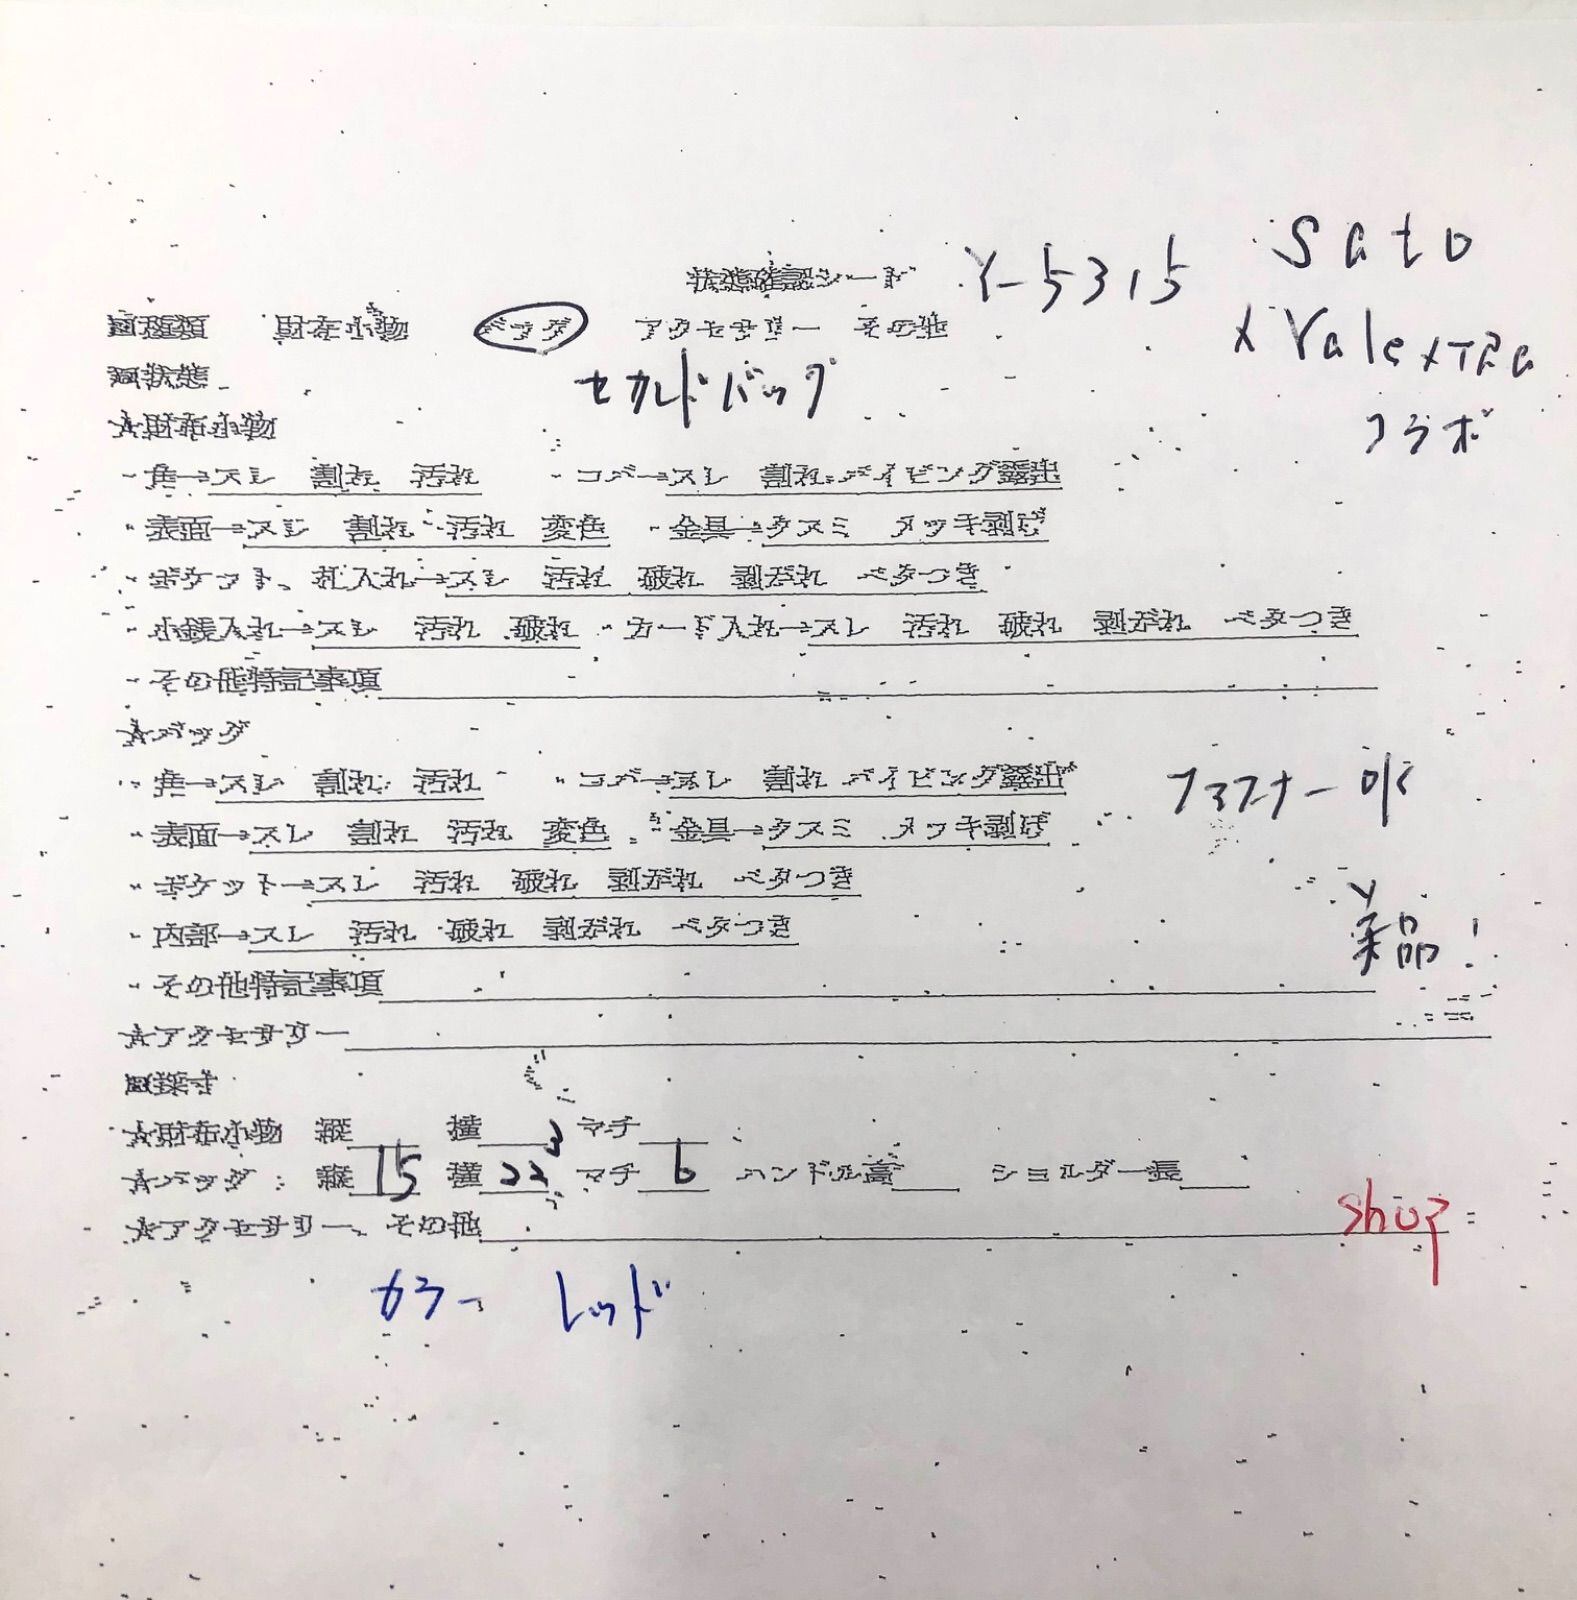 状態確認シート Y-5315 Sato
×ValexTRa
コラボ
□種類 財布小物 バッグ アクセサリー その他
□状態
セカンドバッグ
☆財布小物
・角→スレ 割れ 汚れ ・コバ→スレ 割れ パイピング露出
・表面→スレ 割れ 汚れ 変色 ・金具→クスミ メッキ剥げ
・ポケット、札入れ→スレ 汚れ 破れ 剥がれ ベタつき
・小銭入れ→スレ 汚れ 破れ ・カード入れ→スレ 汚れ 破れ 剥がれ ベタつき
・その他特記事項
☆バッグ
・角→スレ 割れ 汚れ ・コバ→スレ 割れ パイピング露出
ファスナーOK
・表面→スレ 割れ 汚れ 変色 ・金具→クスミ メッキ剥げ
・ポケット→スレ 汚れ 破れ 剥がれ ベタつき
・内部→スレ 汚れ 破れ 剥がれ ベタつき
品!
・その他特記事項
☆アクセサリー
□採寸
☆財布小物 縦 横 マチ
☆バッグ 縦15 横22 マチ6 ハンドル高 ショルダー長
☆アクセサリー、その他 shop
カラー レッド